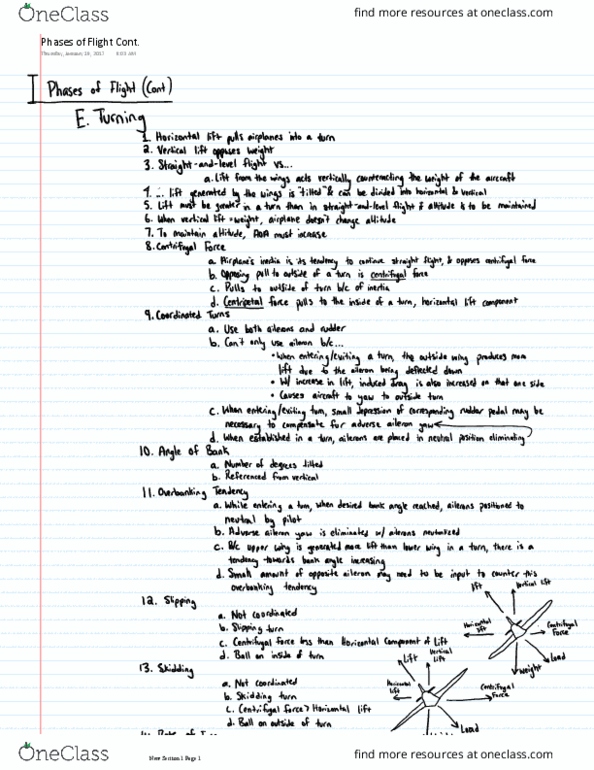 OneClass
find more resources at oneclass.com
Phases of Flight Cont.
Thursday, January 19, 2017
I Phases of Flight (Cont)
E. Turning
1. Horizontal lift pulls airplanes into a turn
2. Vertical lift opposes weight
3. Straight-and-level flight vs...
a. Lift from the wings acts vertically counteracting the weight of the aircraft
4. ∴ lift generated by the wings is "tilted" & can be divided into horizontal & vertical
5. Lift must be greater in a turn than in straight-and-level flight if altitude is to be maintained
6. When vertical lift = weight, airplane doesn't change altitude
7. To maintain altitude, AOA must increase
8. Centrifugal Force
a. Airplane's inertia is its tendency to continue straight flight, & opposes centrifugal force
b. Opposing pull to outside of a turn is centrifugal force
c. Pulls to outside of turn b/c of inertia
d. Centripetal force pulls to the inside of a turn, horizontal lift component
9. Coordinated Turns
a. Use both ailerons and rudder
b. Can't only use aileron b/c...
• When entering/exiting a turn, the outside wing produces more
lift due to the aileron being deflected down
• W/ increase in lift, induced drag is also increased on that one side
• Causes aircraft to yaw to outside turn
c. When entering/exiting turn, small depression of corresponding rudder pedal may be
necessary to compensate for adverse aileron yaw
d. When established in a turn, ailerons are placed in neutral position eliminating
10. Angle of Bank
a. Number of degrees tilted
b. Referenced from vertical
11. Overbanking Tendency
a. While entering a turn, when desired bank angle reached, ailerons positioned to
neutral by pilot
b. Adverse aileron yaw is eliminated w/ ailerons neutralized
c. B/c upper wing is generated more lift than lower wing in a turn, there is a
tendency towards bank angle increasing
d. Small amount of opposite aileron may need to be input to counter this
overbanking tendency
12. Slipping
a. Not coordinated
b. Slipping turn
c. Centrifugal force less than Horizontal Component of Lift
d. Ball on inside of turn
lift
Vertical lift
Horizontal lift
Centrifugal Force
Load
Weight
13. Skidding
a. Not coordinated
b. Skidding turn
c. Centrifugal Force > Horizontal lift
d. Ball on outside of turn
Lift
Vertical lift
Horizontal lift
Centrifugal Force
Load
OneClass
New Section 1 Page 1
find more resources at oneclass.com